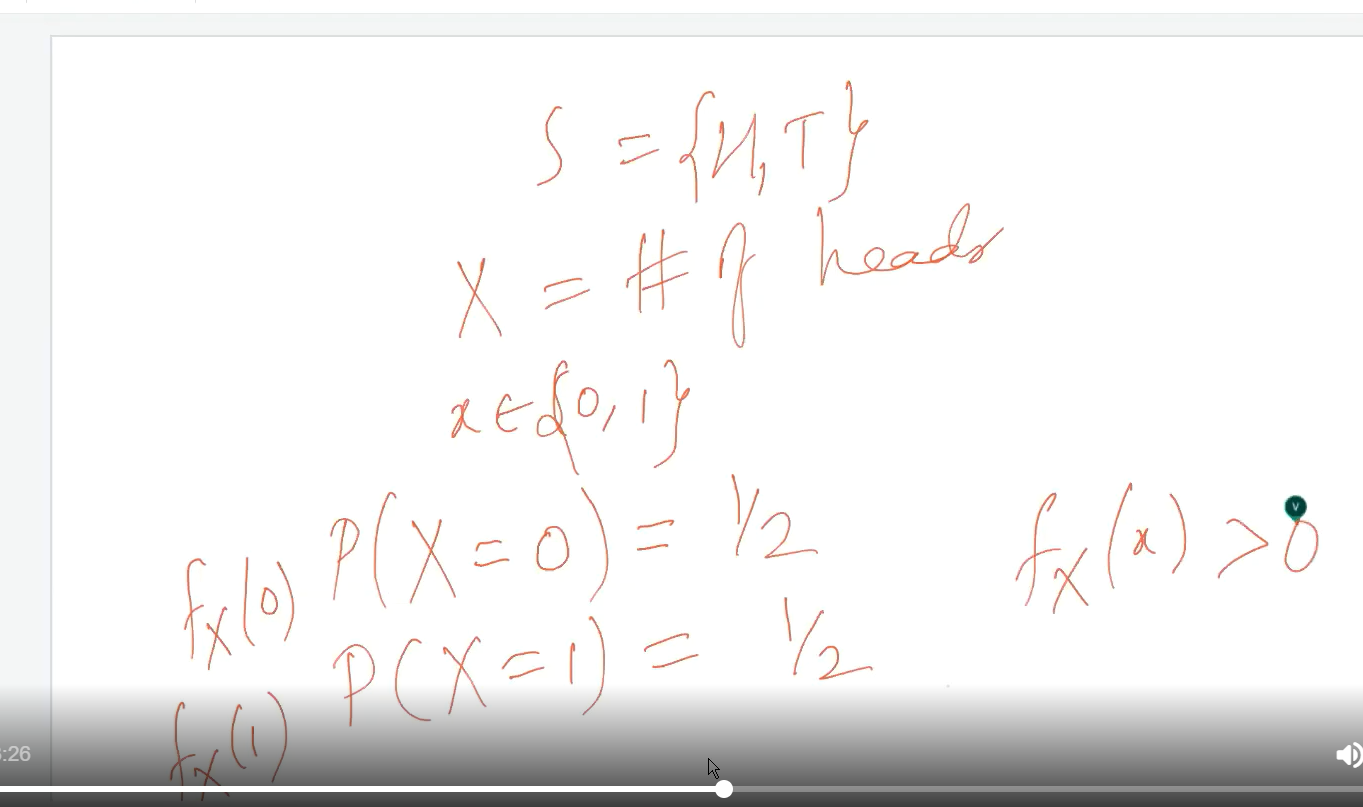 S = {H, T}
X = # of heads
x ∈ {0, 1}
f_X(0) P(X = 0) = 1/2
f_X(x) > 0
V
f_X(1) P(X = 1) = 1/2
:26